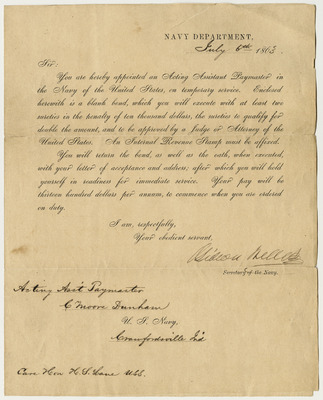 NAVY DEPARTMENT,
July 6th 1863.
Sir:
You are hereby appointed an Acting Assistant Paymaster in
the Navy of the United States, on temporary service. Enclosed
herewith is a blank bond, which you will execute with at least two
sureties in the penalty of ten thousand dollars, the sureties to qualify for
double the amount, and to be approved by a Judge or Attorney of the
United States. An Internal Revenue Stamp must be affixed.
You will return the bond, as well as the oath, when executed,
with your letter of acceptance and address; after which you will hold
yourself in readiness for immediate service. Your pay will be
thirteen hundred dollars per annum, to commence when you are ordered
on duty.
I am, respectfully,
Your obedient servant,
Gideon Welles
Secretary of the Navy.
Acting Ass't Paymaster
C Moore Dunham
U. S. Navy,
Crawfordsville Ind
Care Hon H. S. Lane USS.